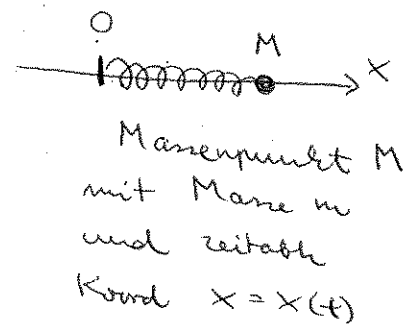 O
M
X
Massenpunkt M
mit Masse m
und zeitabh
Koord x = x(t)